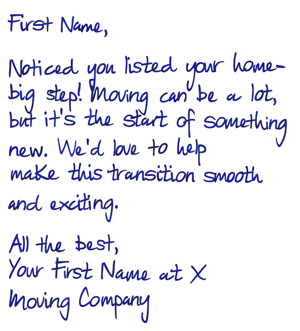 First Name,
Noticed you listed your home-
big step! Moving can be a lot,
but it's the start of something
new. We'd love to help
make this transition smooth
and exciting.
All the best,
Your First Name at X
Moving Company